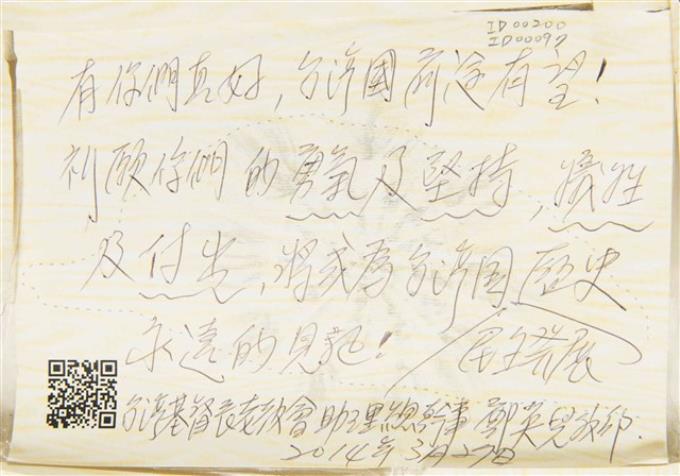 ID00200
ID00097
有你們真好，台灣國前途有望！
祈願你們的勇氣及堅持，犧牲
及付出，將成為台灣国歷史
永遠的見証！
民主發展
台灣基督長老教會助理總幹事 鄭英兒敬邱.
2014年3月27日